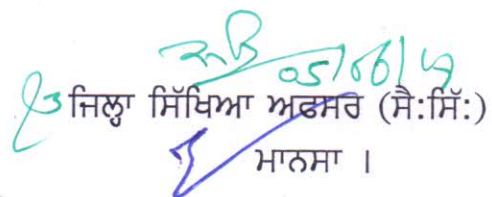 05/06/19
ਜਿਲ੍ਹਾ ਸਿੱਖਿਆ ਅਫਸਰ (ਸੈ:ਸਿੱ:)
ਮਾਨਸਾ ।